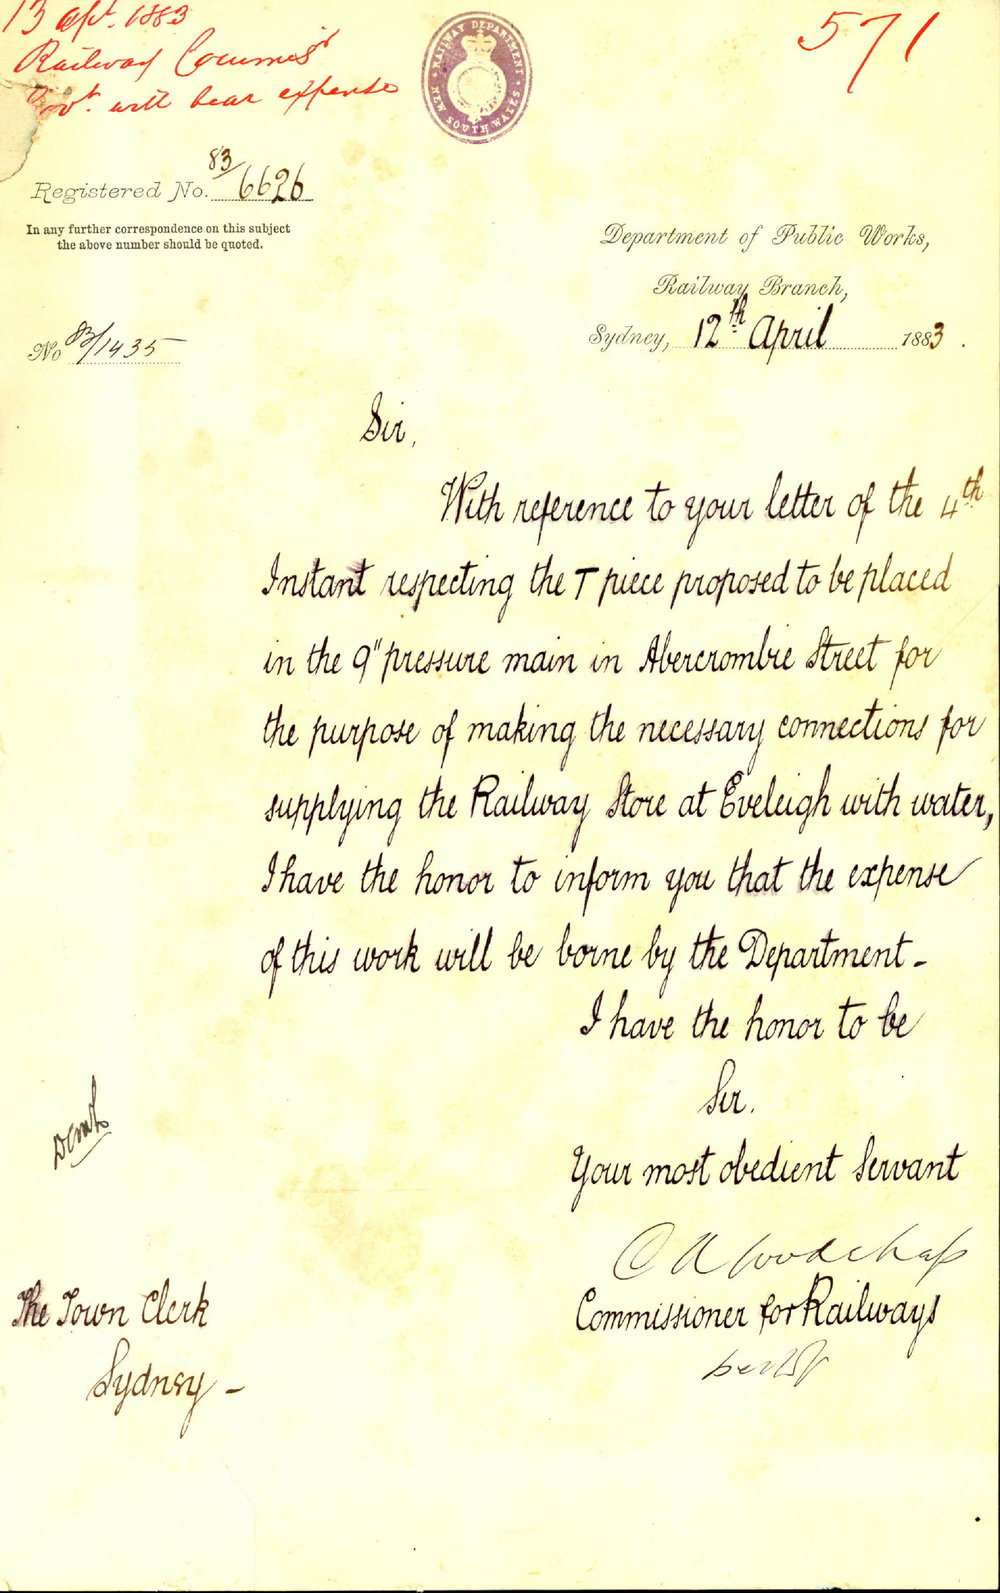 13 Apl. 1883
Railway Commissr
Govt. will bear expense
571
RAILWAY DEPARTMENT
NEW SOUTH WALES
Registered No. 83/6626
In any further correspondence on this subject
the above number should be quoted.
Department of Public Works,
Railway Branch,
Sydney, 12th April 1883.
No 83/1435
Sir,
With reference to your letter of the 4th
Instant respecting the T piece proposed to be placed
in the 9" pressure main in Abercrombie Street for
the purpose of making the necessary connections for
supplying the Railway Store at Eveleigh with water,
I have the honor to inform you that the expense
of this work will be borne by the Department -
I have the honor to be
Sir.
Your most obedient Servant
Ch A Goodchap
Commissioner for Railways
The Town Clerk
Sydney -